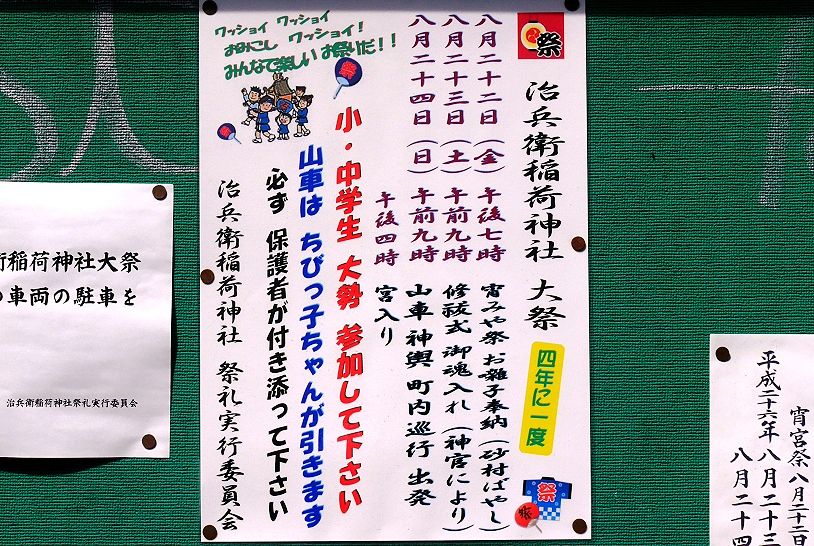 祭
治兵衛稲荷神社 大祭
四年に一度
祭
八月二十二日(金) 午後七時 宵みや祭 お囃子奉納(砂村ばやし)
八月二十三日(土) 午前九時 修祓式 御魂入れ(神官により)
八月二十四日(日) 午前九時 山車 神輿 町内巡行 出発
午後四時 宮入り
ワッショイ ワッショイ
おみこし ワッショイ!
みんなで楽しい お祭りだ!!
祭
小・中学生 大勢 参加して下さい
山車は ちびっ子ちゃんが引きます
必ず 保護者が付き添って下さい
治兵衛稲荷神社 祭礼実行委員会
衛稲荷神社大祭
車両の駐車を
治兵衛稲荷神社祭礼実行委員会
宵宮祭 八月二十二日
平成二十六年 八月二十三
八月二十四